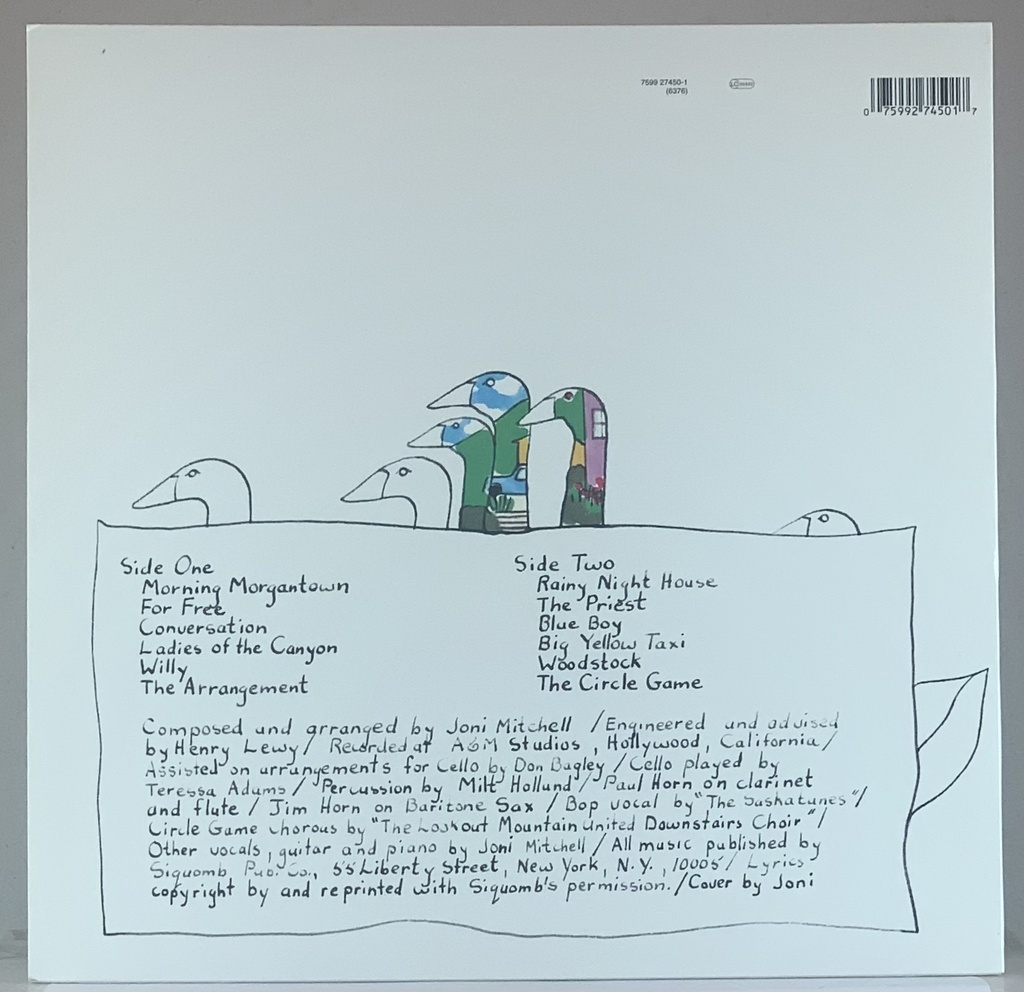 7599 27450-1
(6376)
0 75992 74501 7
Side One
Morning Morgantown
For Free
Conversation
Ladies of the Canyon
Willy
The Arrangement
Side Two
Rainy Night House
The Priest
Blue Boy
Big Yellow Taxi
Woodstock
The Circle Game
Composed and arranged by Joni Mitchell / Engineered and advised
by Henry Lewy / Recorded at A&M Studios, Hollywood, California /
Assisted on arrangements for Cello by Don Bagley / Cello played by
Teressa Adams / Percussion by Milt Holland / Paul Horn on clarinet
and flute / Jim Horn on Baritone Sax / Bop vocal by "The Saskatunes" /
Circle Game chorous by "The Lookout Mountain United Downstairs Choir" /
Other vocals, guitar and piano by Joni Mitchell / All music published by
Siquomb Pub. Co., 55 Liberty Street, New York, N.Y., 10005 / Lyrics
copyright by and reprinted with Siquomb's permission. / Cover by Joni